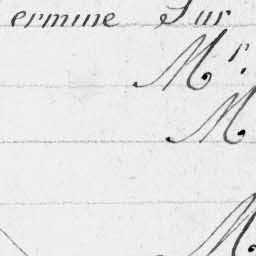 ermine Sur
Mr.
M
M.